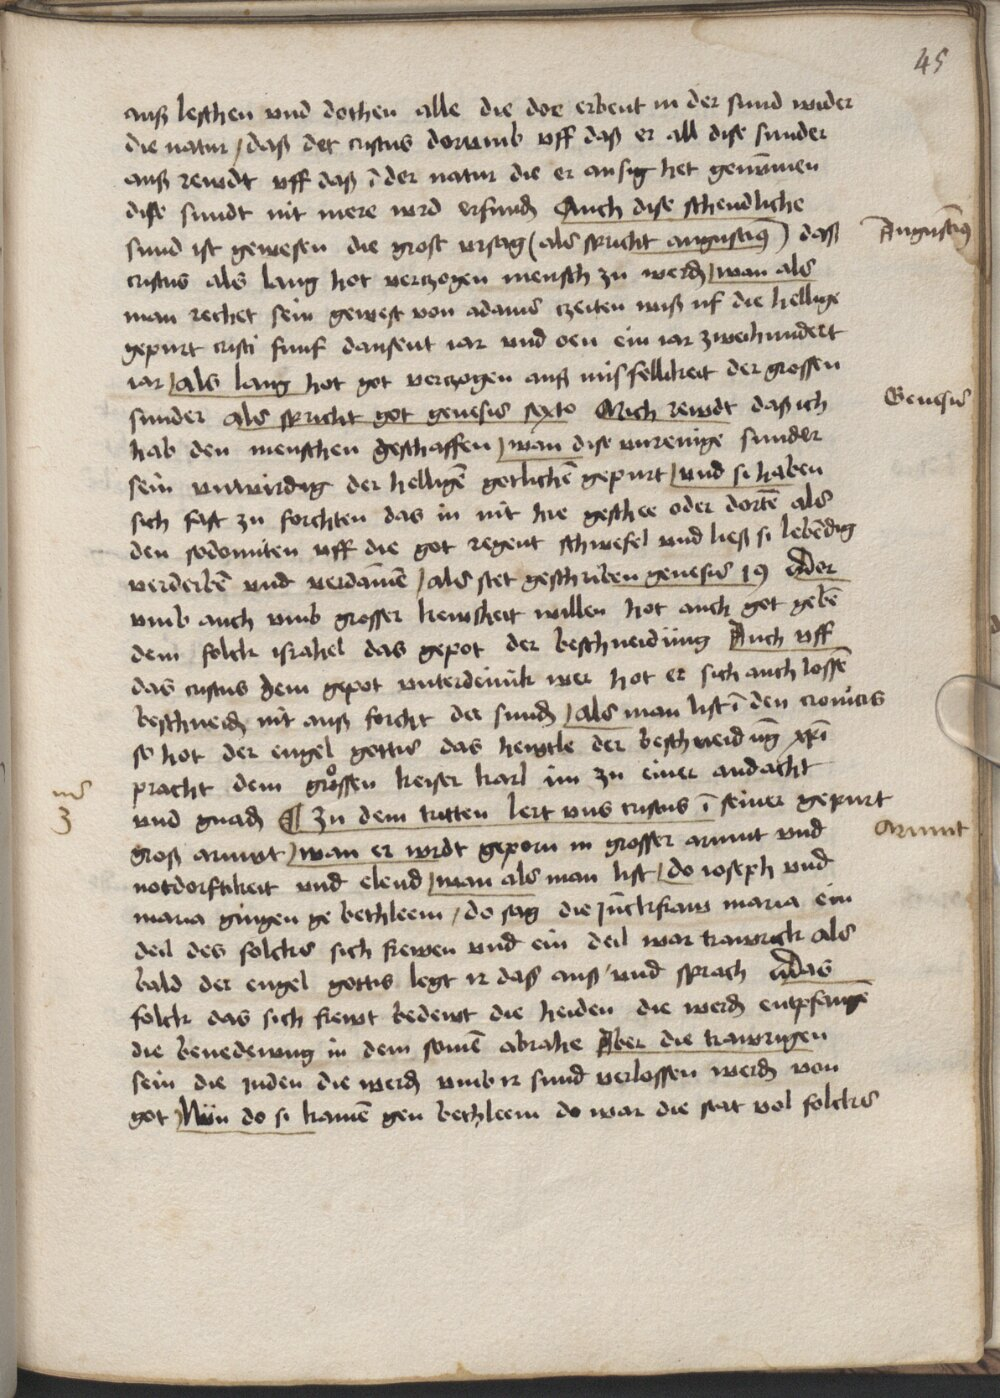 45
auß leschen vnd dothen alle die doe erbent in der sund wider
die natur / daß det cristus dorvmb vff daß er all dise sunder
auß rewdt vff daß ī der natur die er an sig het genūmen
dise sundt nit mere wrd erfundꝭ Auch dise schendliche
sund ist gewesen die grost vrsag (als spricht augustinꝰ) daß
Augustinꝰ
cristus als lang hot verczogen mensch zu werdꝭ / wan als
man rechet sein gewest von adams czeiten muß uf die hellige
gepurt cristi funf dausent iar vnd oen ein iar zweihundert
iar / als lang hot got verczogen auß misfellikeit der grossen
sunder als spricht got genesis sexto Mich rewdt daß ich
Genesis
hab den menschen geschaffen / wan dise vnrenige sunder
sein vnwirdig der helligē gotlichē gepurt / vnd si haben
sich fast zu forchten das in nit hie geschee oder dortē als
den sodomiten vff die got regent schwefel vnd ließ si lebēdig
verderbē vnd verdāmē / als stet geschriben genesis 19 Dor
vmb auch vmb grosser kewsheit willen hot auch got gebē
dem folck israhel das gepot der beschneidung Auch vff
das cristus dem gepot vnterdenick wer hot er sich auch lossē
beschneidꝭ nit auß forcht der sundꝭ / als man list ī den cronicis
so hot der engel gottis das hewtle der beschneidūg xp̄i
pracht dem grossen keiser karl im zu einer andacht
vnd gnadꝭ ¶ Zu dem tritten lert vns cristus ī seiner gepurt
3
groß armvt / wan er wrdt geporn in grosser armut vnd
armut
notdorftikeit vnd elend / wan als man list / do ioseph vnd
maria gingen ge bethleem / do sag die Jūckfraw maria ein
deil des folcks sich frewen vnd ein deil war trawrick als
bald der engel gottis legt ir daß auß / vnd sprach Das
folck das sich frewt bedewt die heiden die werdꝭ entpfangē
die benedewng in dem somē abrahe Aber die trawrigen
sein die juden die werdꝭ vmb ir sund verlossen werdꝭ von
got / Nün do si kamē gen bethleem do war die stat vol folcks